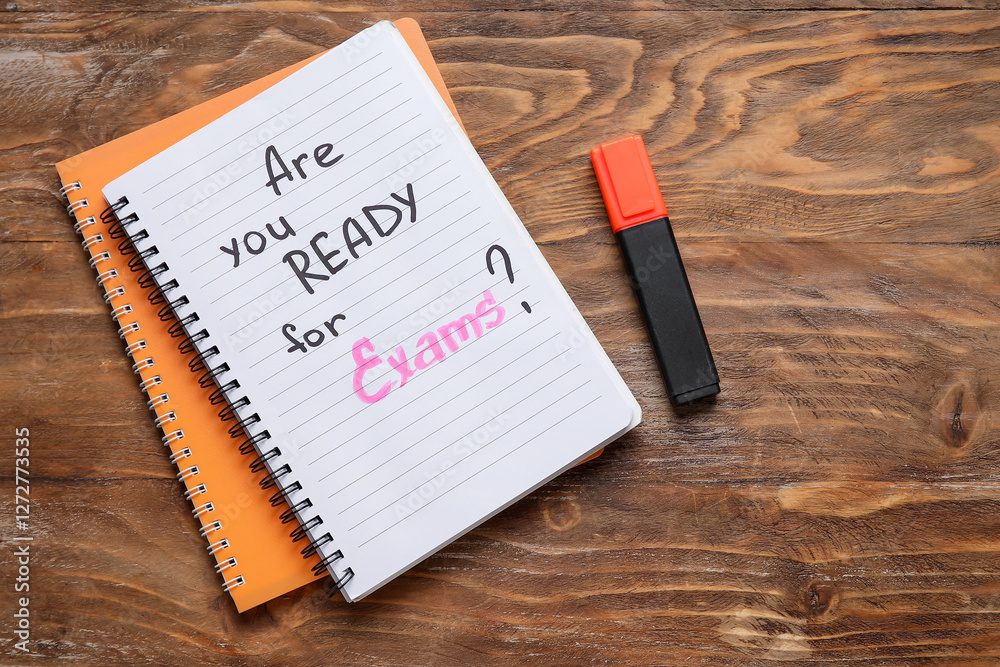 Are
you READY
for Exams?
Adobe Stock | #1272773535